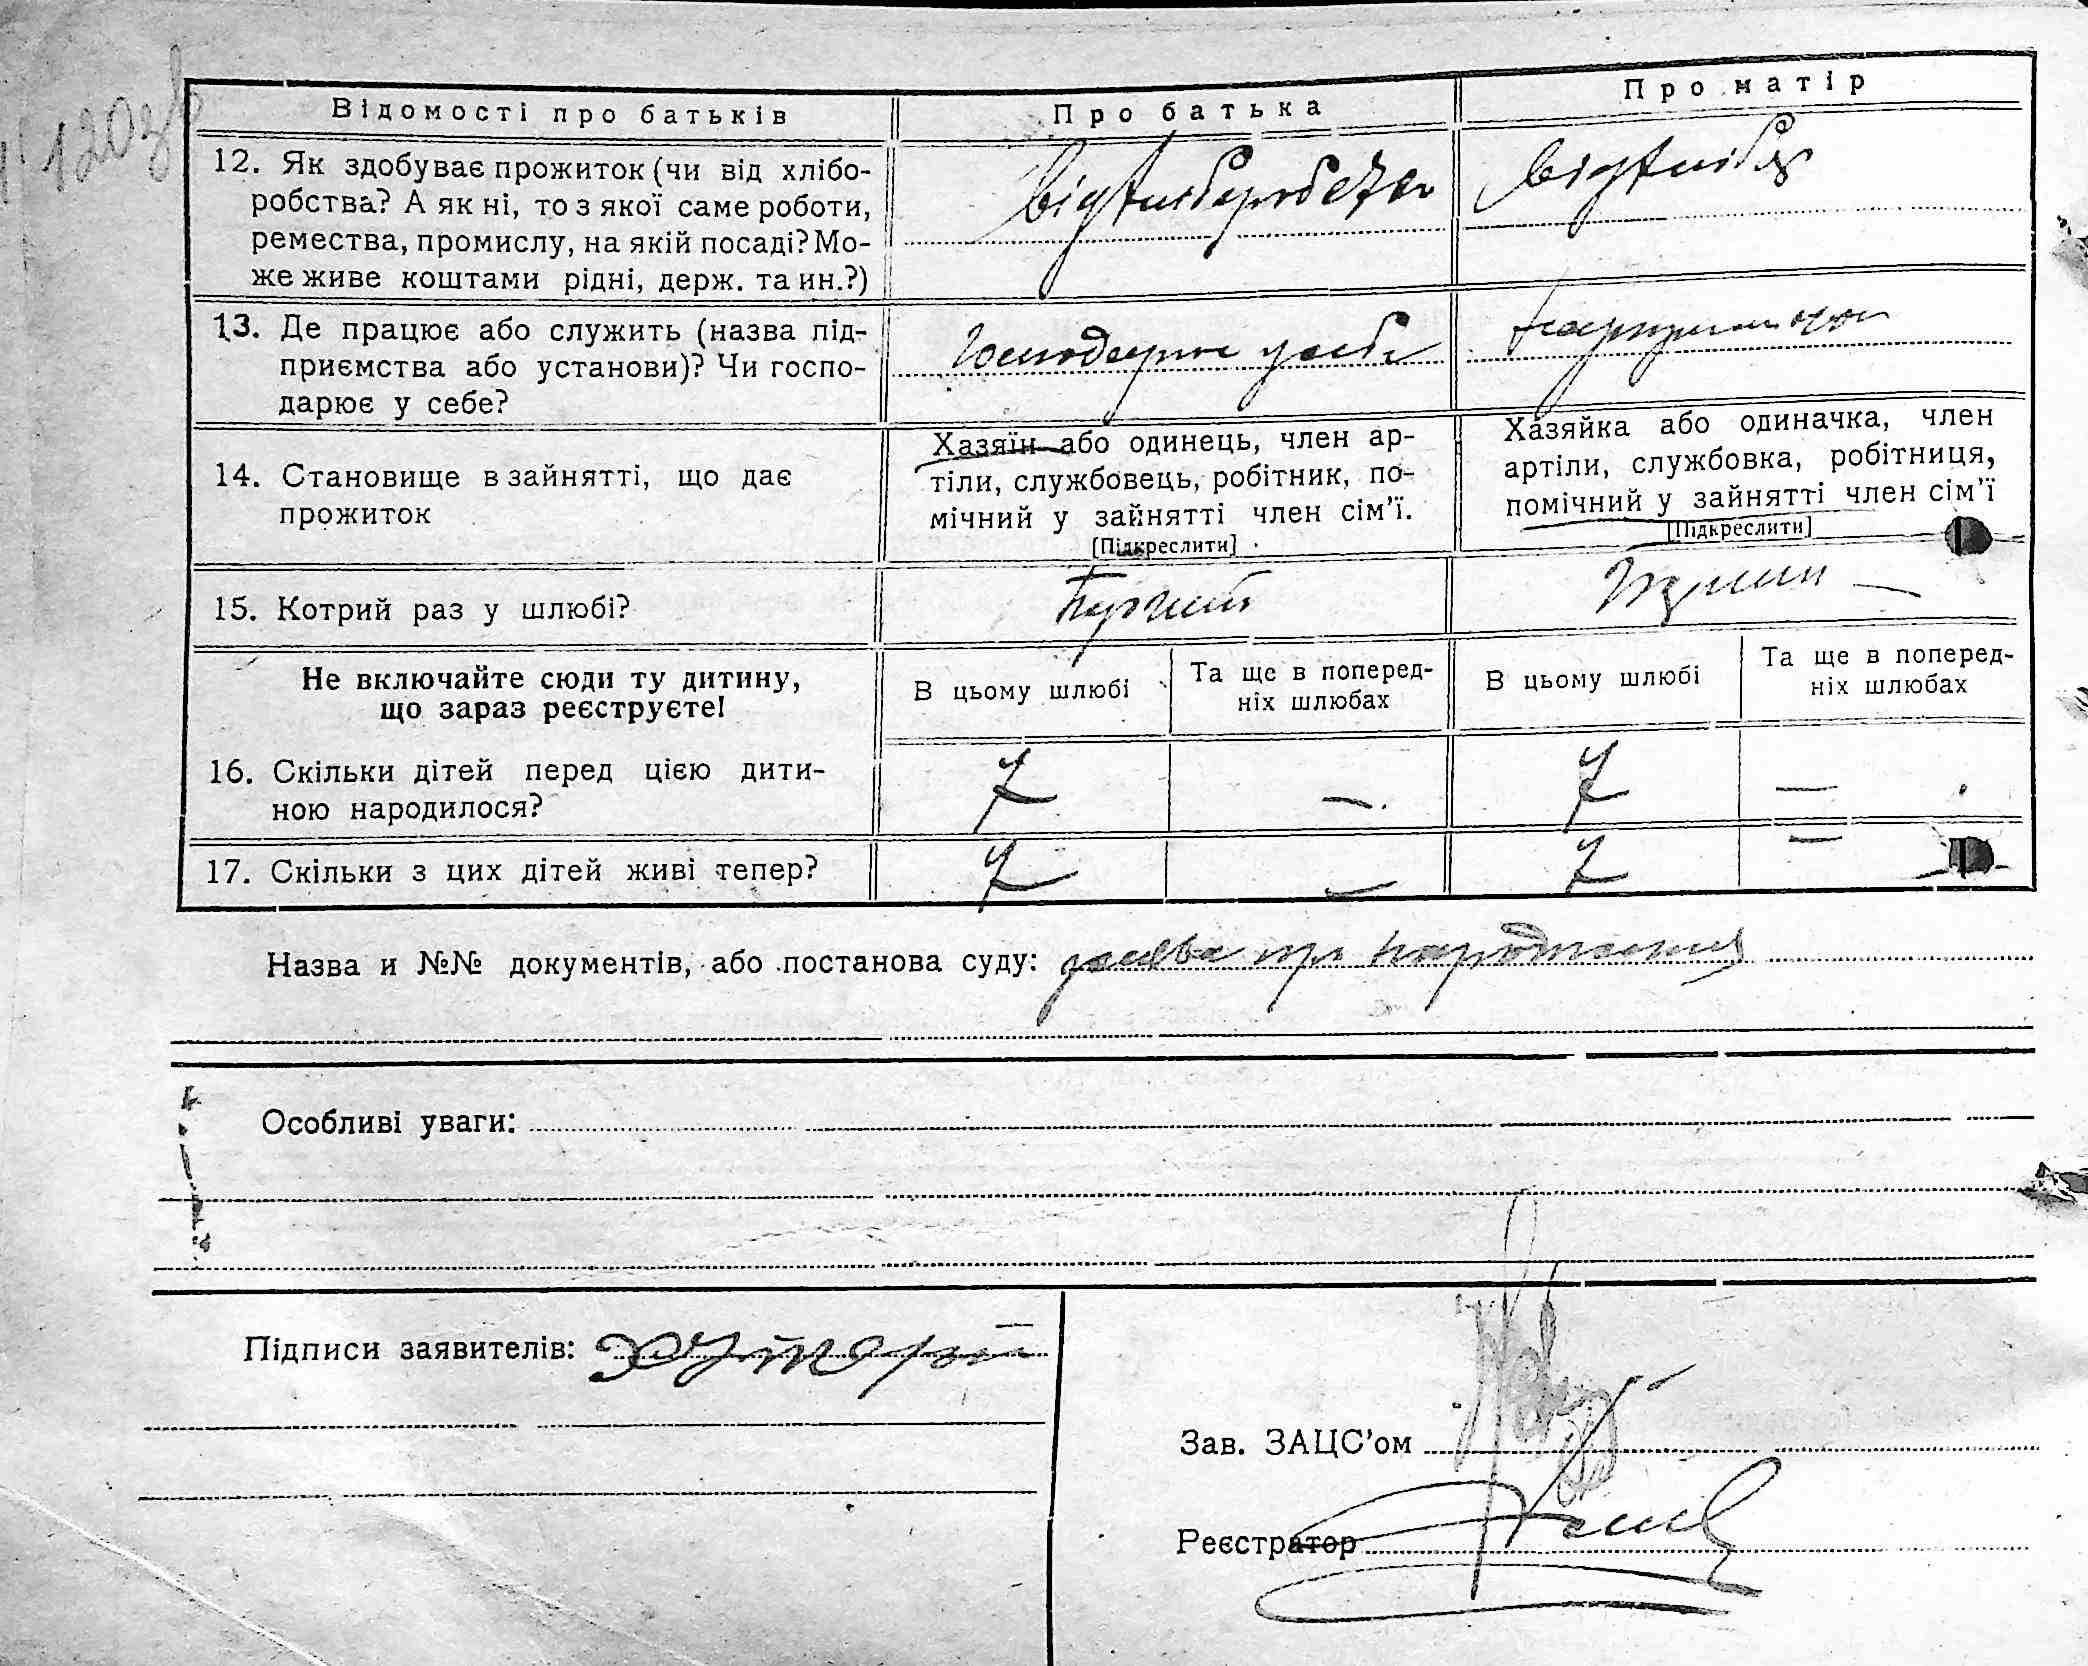 120зв
Відомості про батьків
Про батька
Про матір
12. Як здобуває прожиток (чи від хлібо-
робства? А як ні, то з якої саме роботи,
ремества, промислу, на якій посаді? Мо-
же живе коштами рідні, держ. та ин.?)
від хліборобства
13. Де працює або служить (назва під-
приємства або установи)? Чи госпо-
дарює у себе?
Господарює у себе
14. Становище в зайнятті, що дає
прожиток
Хазяїн або одинець, член ар-
тіли, службовець, робітник, по-
мічний у зайнятті член сім'ї.
[Підкреслити]
Хазяйка або одиначка, член
артіли, службовка, робітниця,
помічний у зайнятті член сім'ї
[Підкреслити]
15. Котрий раз у шлюбі?
Перший
Не включайте сюди ту дитину,
що зараз реєструєте!
В цьому шлюбі
Та ще в поперед-
ніх шлюбах
В цьому шлюбі
Та ще в поперед-
ніх шлюбах
16. Скільки дітей перед цією дити-
ною народилося?
7 — 7 —
17. Скільки з цих дітей живі тепер?
7 — 7 —
Назва и №№ документів, або постанова суду: заява про народження
Особливі уваги:
Підписи заявителів:
Зав. ЗАЦС'ом
Реєстратор